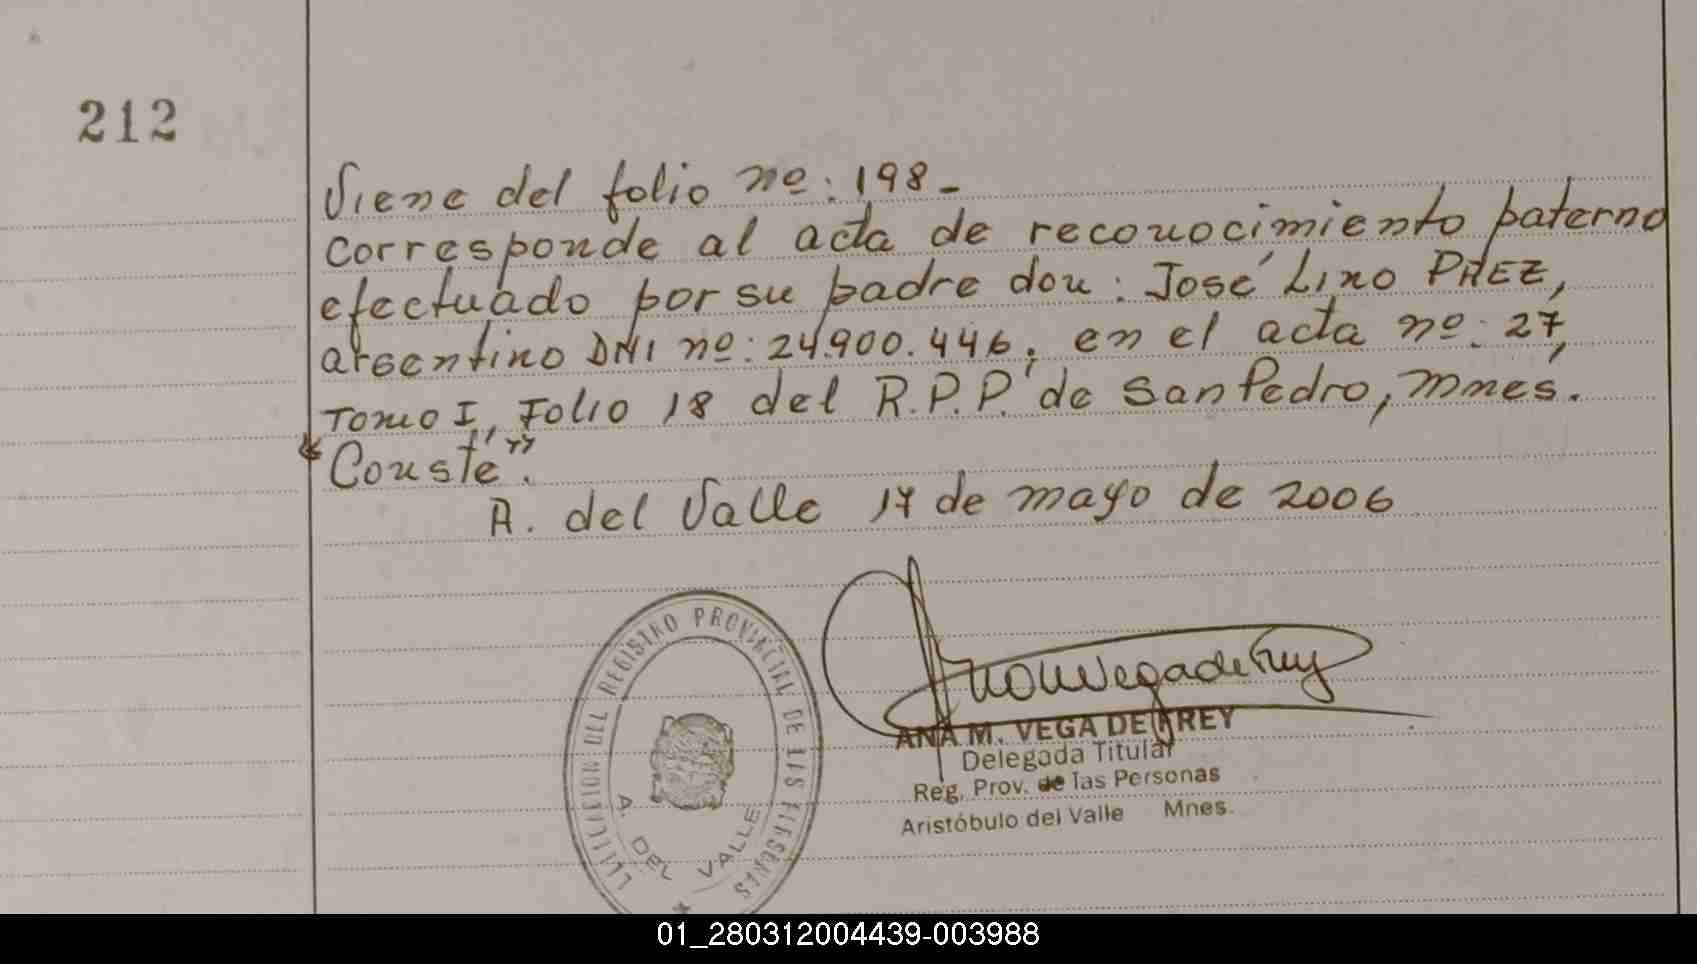 212
Viene del folio nº: 198-
corresponde al acta de reconocimiento paterno
efectuado por su padre don: José Lino PAEZ,
argentino DNI nº: 24.900.446, en el acta nº: 27,
Tomo I, Folio 18 del R.P.P. de San Pedro, Mnes.
"Conste".
A. del Valle 17 de mayo de 2006
DEL REGISTRO PROVINCIAL DE LAS PERSONAS
A. DEL VALLE
AnaMVegadeFrey
ANA M. VEGA DE FREY
Delegada Titular
Reg. Prov. de las Personas
Aristóbulo del Valle Mnes.
01_280312004439-003988